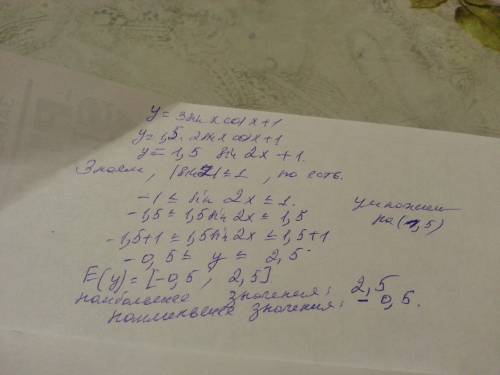 y = 3sin x cos x + 1
y = 1,5 · 2sin x cos x + 1
y = 1,5 sin 2x + 1.
Знаем, |sin 2| ≤ 1, то есть.
-1 ≤ sin 2x ≤ 1. умножим
-1,5 ≤ 1,5 sin 2x ≤ 1,5 на (1,5)
-1,5+1 ≤ 1,5 sin 2x ≤ 1,5+1
-0,5 ≤ y ≤ 2,5
E(y) = [-0,5, 2,5].
наибольшее значения: 2,5
наименьшее значения: -0,5.